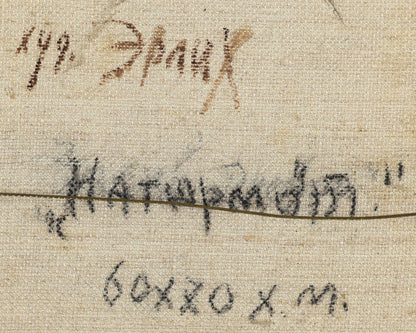 худ. Эрлих
„Натюрморт."
60х80 х.м.